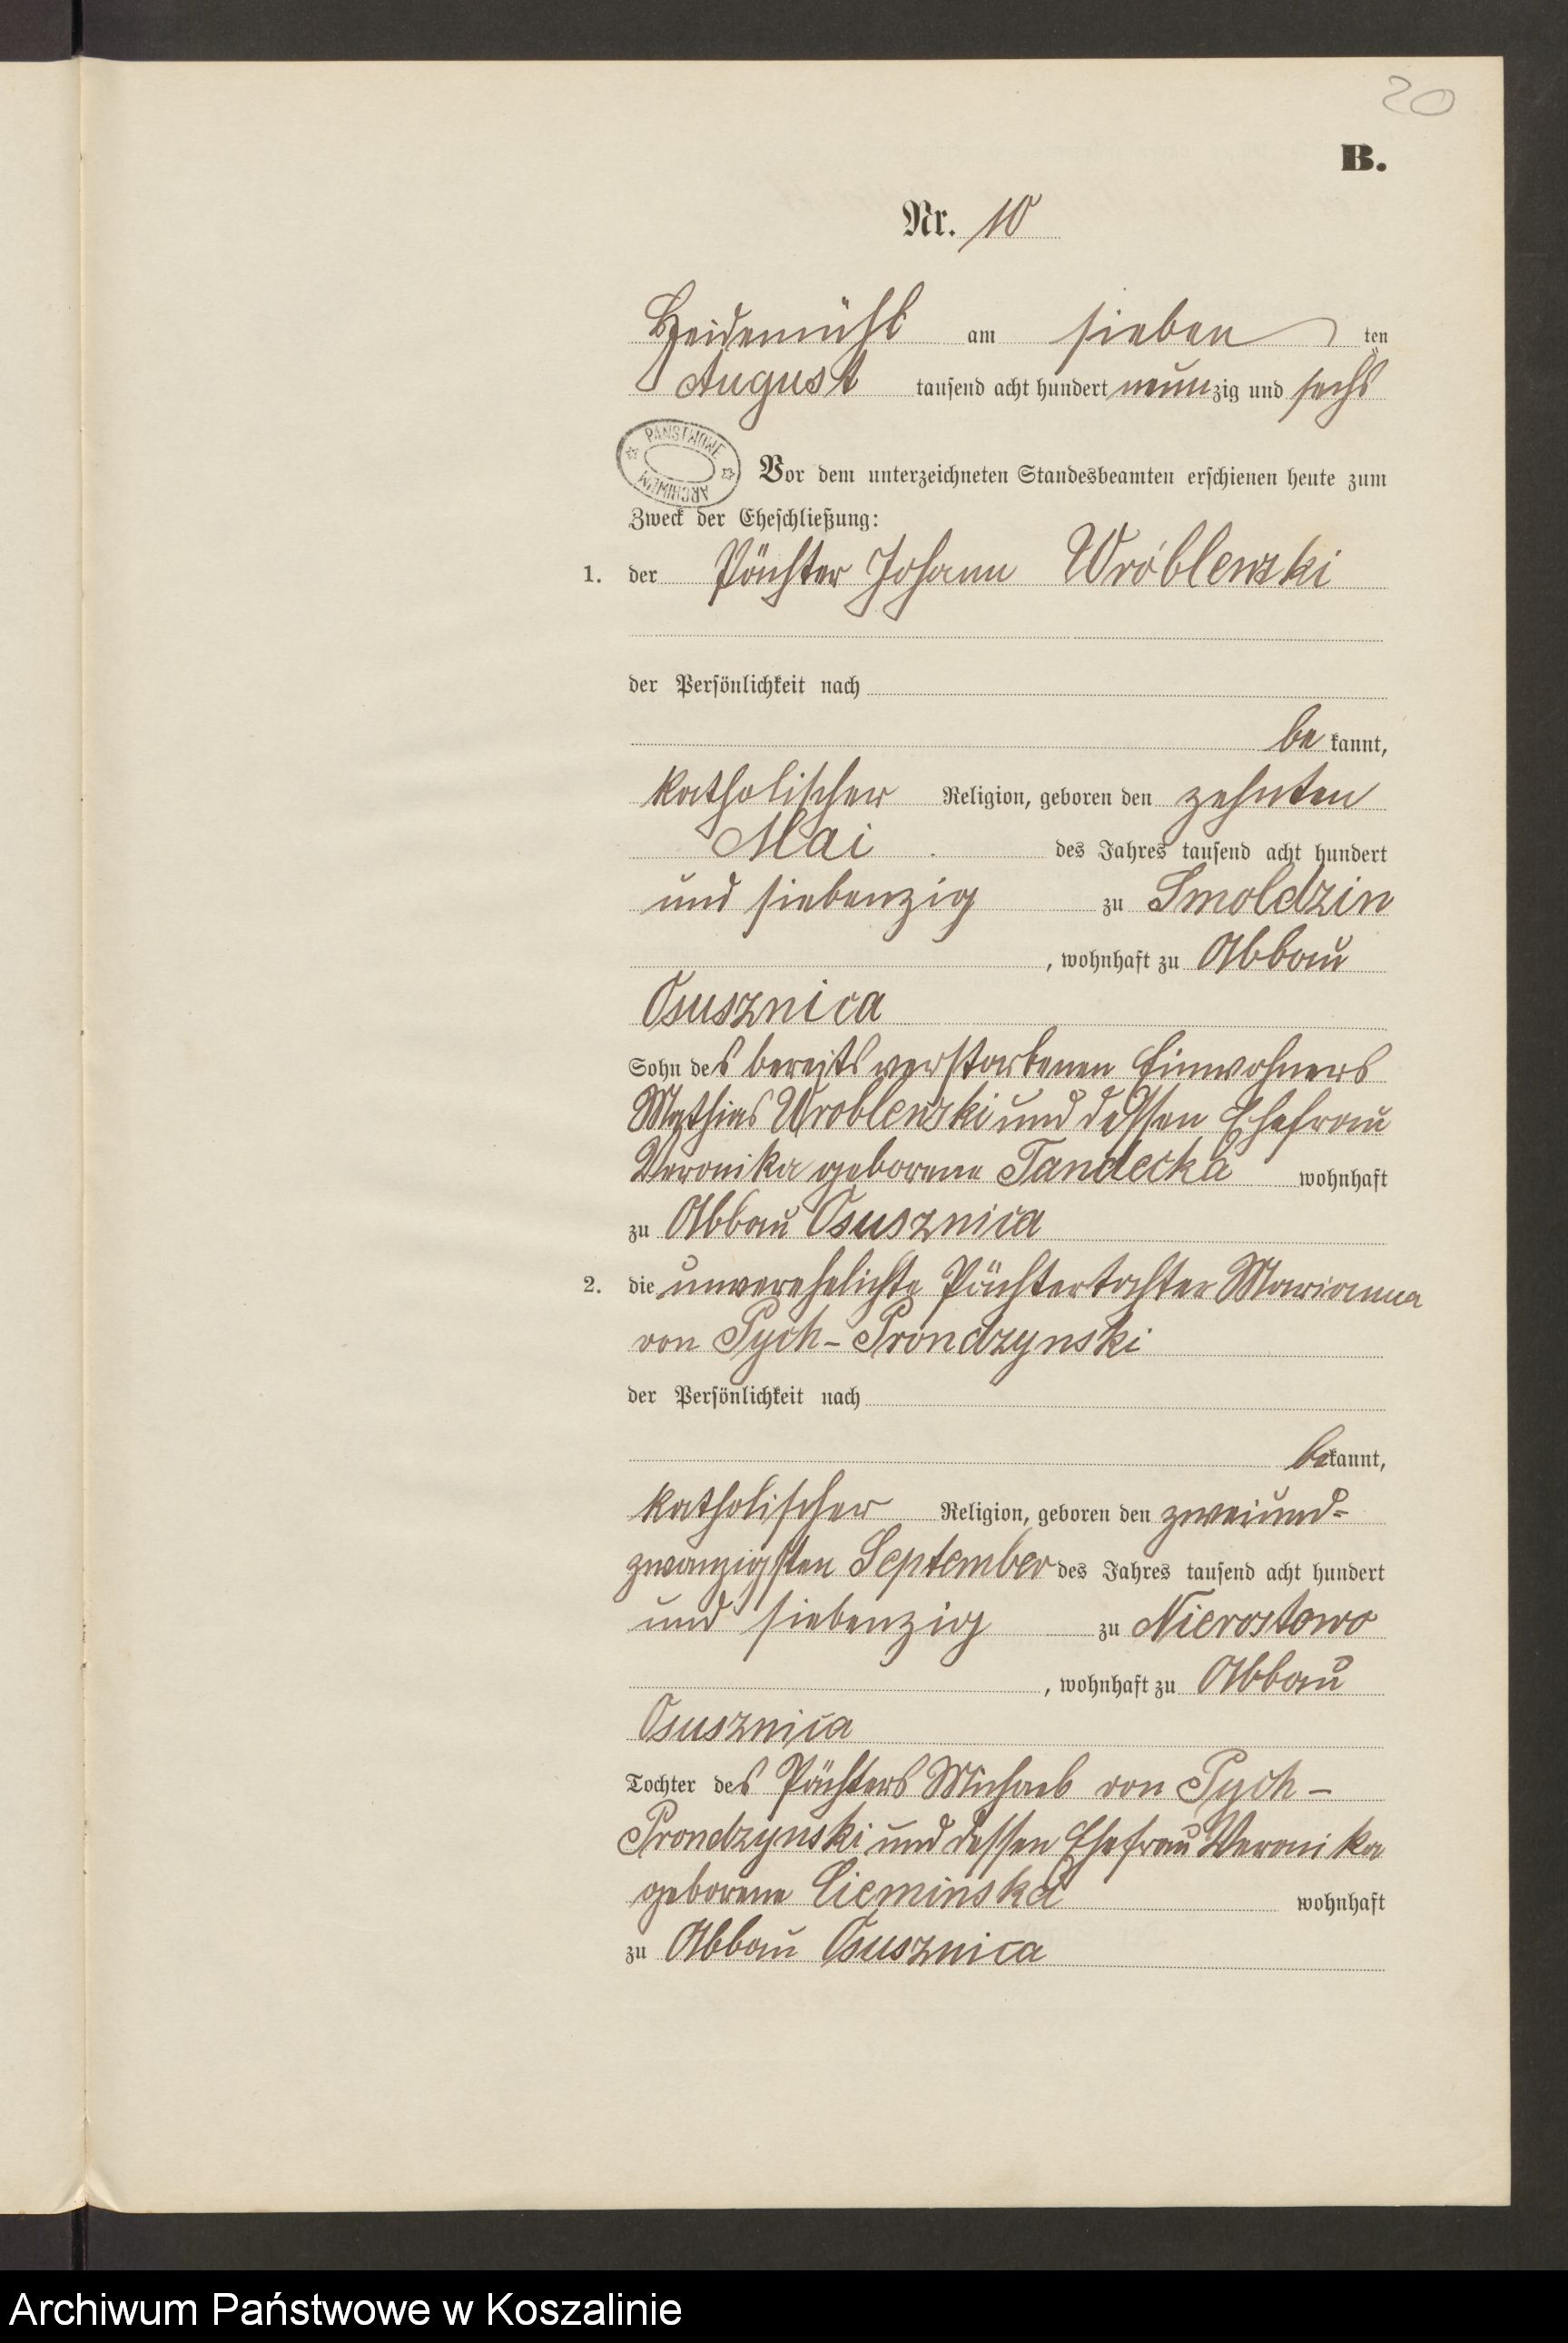 20
B.
Nr. 10
Heidemühl am sieben ten
August tausend acht hundert neunzig und sechs
PAŃSTWOWE ARCHIWUM
Vor dem unterzeichneten Standesbeamten erschienen heute zum
Zweck der Eheschließung:
1. der Pächter Johann Wróblewski
der Persönlichkeit nach
be kannt,
katholischer Religion, geboren den zehnten
Mai des Jahres tausend acht hundert
und siebenzig zu Smoldzin
, wohnhaft zu Abbau
Osusznica
Sohn des bereits verstorbenen Einwohners
Mathias Wroblewski und dessen Ehefrau
Veronika geborene Tandecka wohnhaft
zu Abbau Osusznica
2. die unverehelichte Pächtertochter Marianna
von Pych-Prondzynski
der Persönlichkeit nach
bekannt,
katholischer Religion, geboren den zweiund=
zwanzigsten September des Jahres tausend acht hundert
und siebenzig zu Nierostowo
, wohnhaft zu Abbau
Osusznica
Tochter des Pächters Michael von Pych-
Prondzynski und dessen Ehefrau Veronika
geborene Cieminska wohnhaft
zu Abbau Osusznica
Archiwum Państwowe w Koszalinie